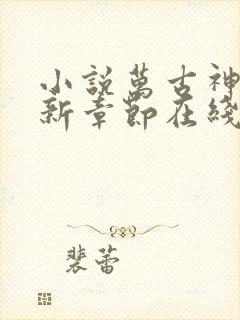 小説萬古神
新章節在綫
裴蕾